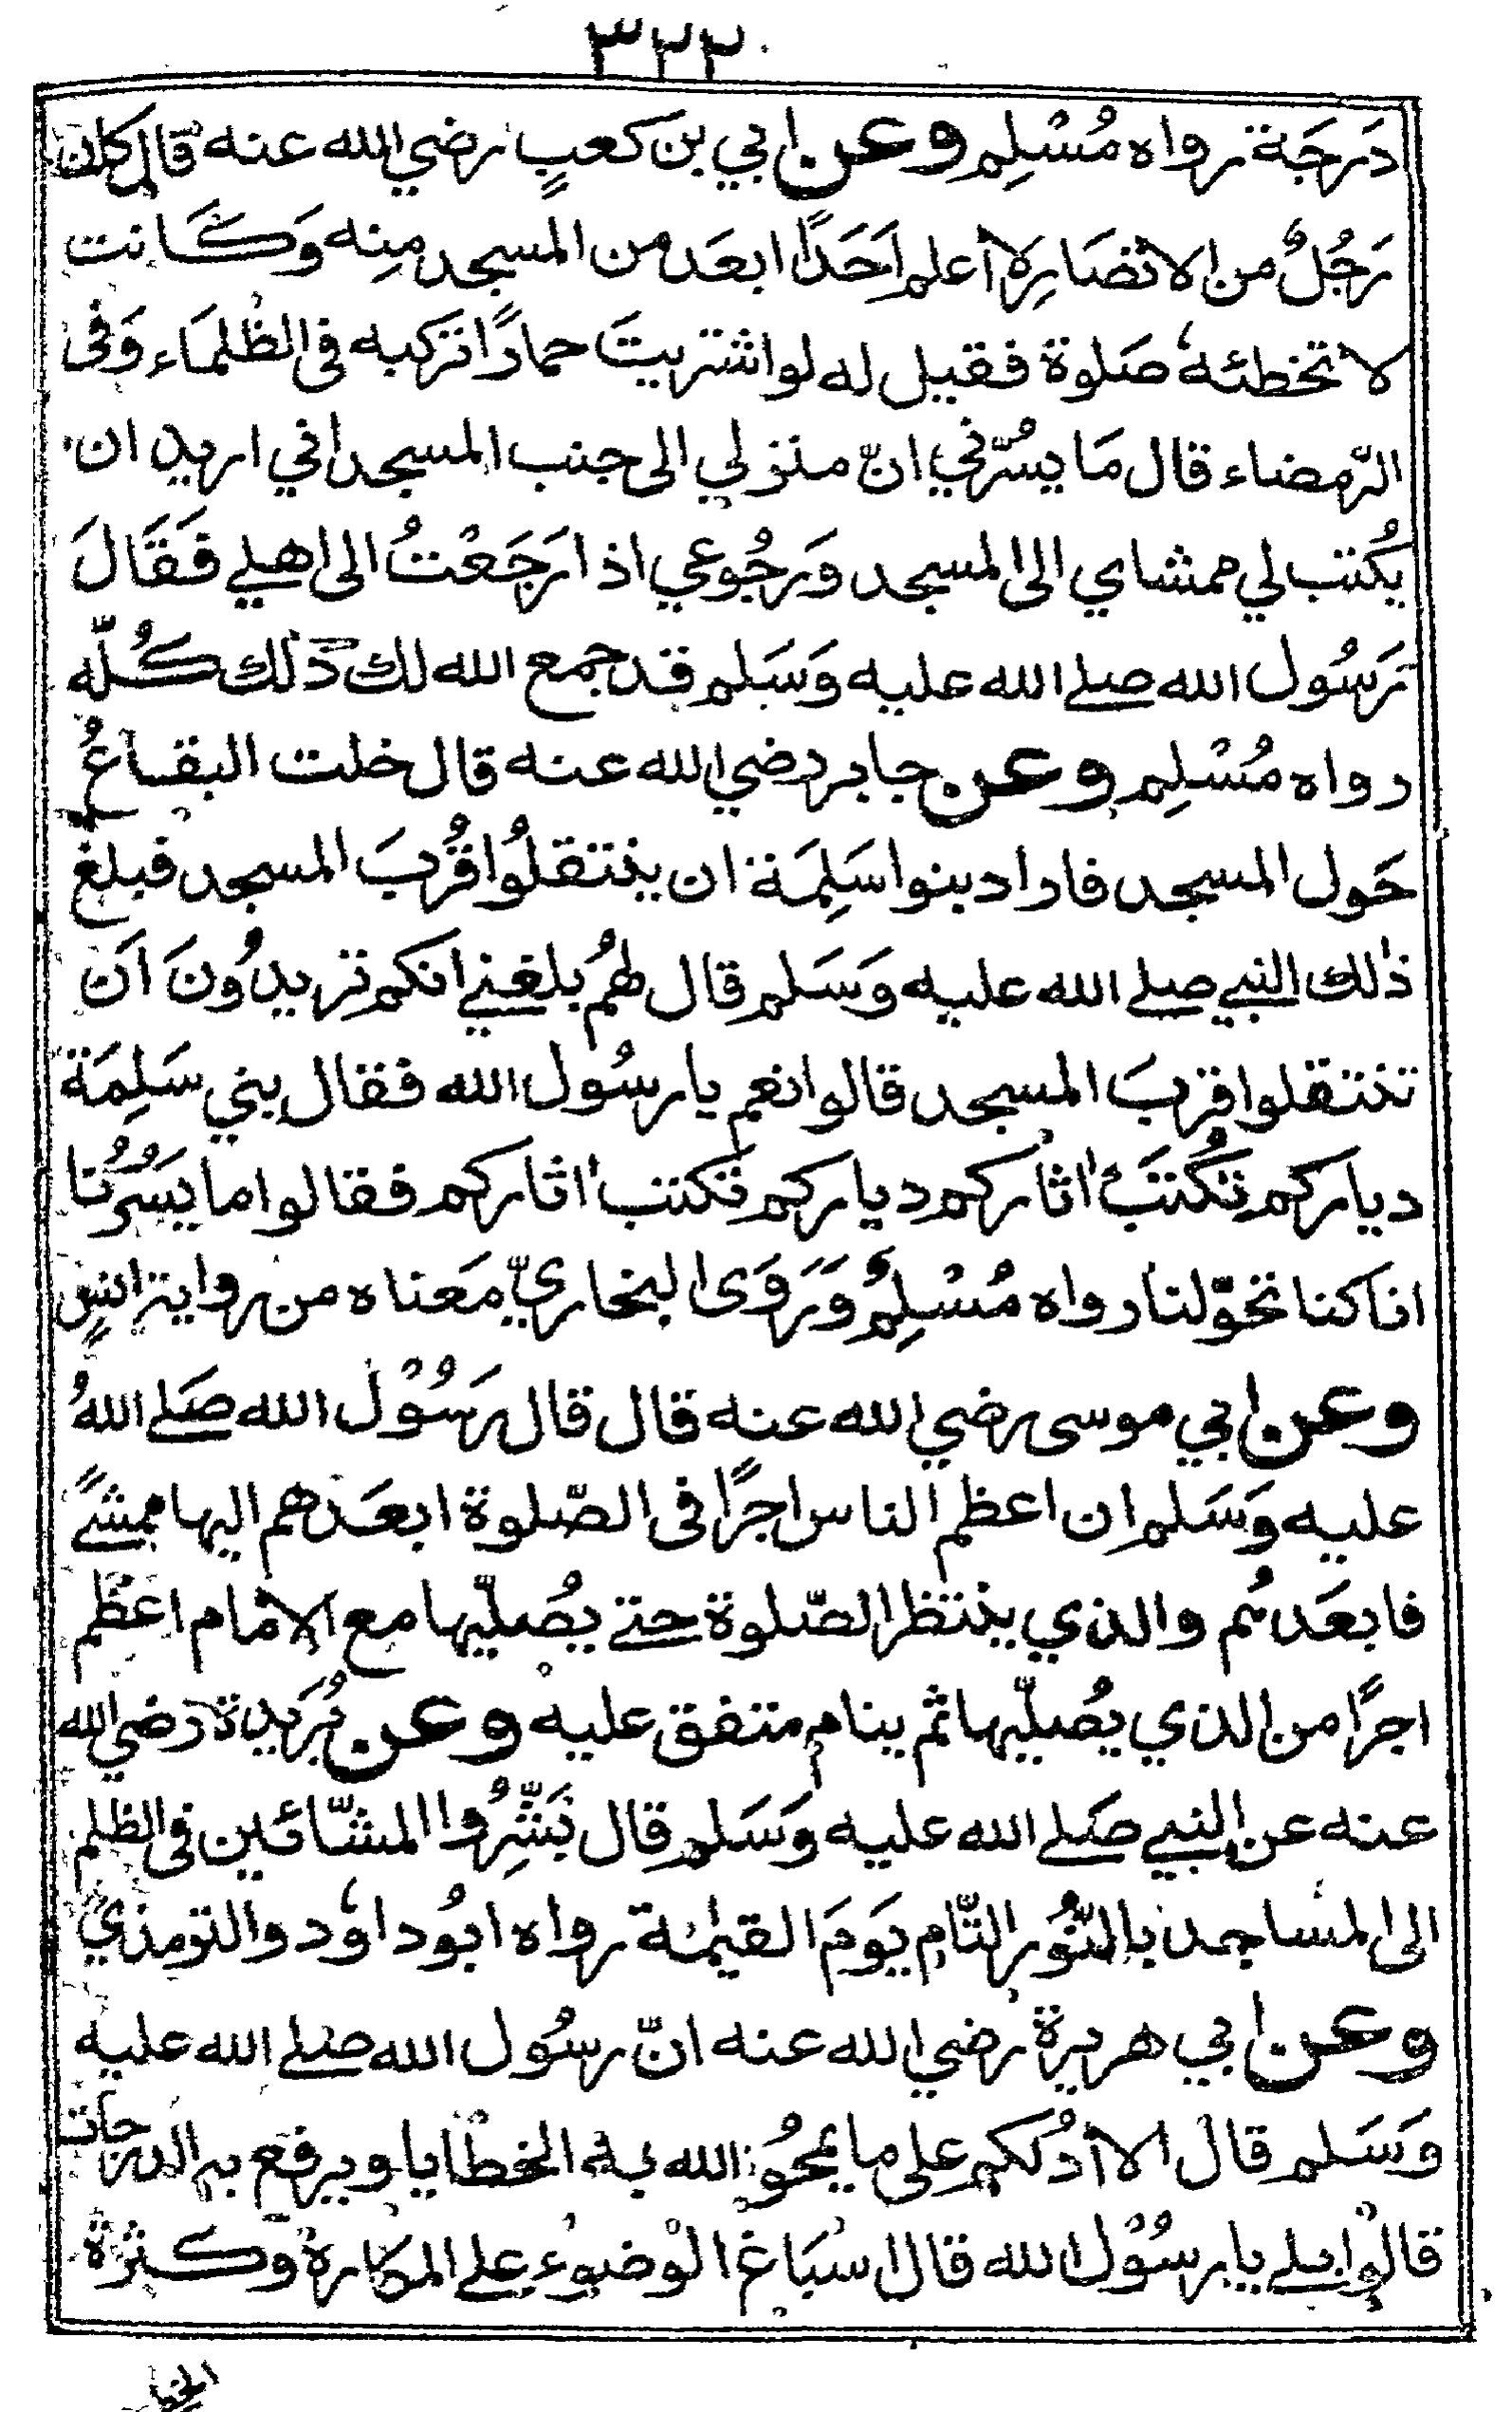 ٣٢٢
دَرَجَة رواه مُسْلِم وعن ابي بن كعبٍ رضي الله عنه قال كان
رَجُلٌ من الانصَار لا أعلم اَحَدًا ابعَد من المسجد مِنه وَكَانت
لا تخطئه صَلوة فقيل له لو اشتريتَ حمارًا تركبه فى الظُلمَاء وَفى
الرّمضاء قال مَا يسُرّني انّ منزلي الى جنب المسجد اني اريد ان
يُكتب لي ممشاي الى المسجد وَرجُوعي اذا رَجَعْتُ الى اهلي فَقَالَ
رَسُول الله صلے الله عليه وَسَلم قد جمع الله لك ذٰلك كُلّه
رواه مُسْلِم وعن جابر رضي الله عنه قال خلت البقاعُ
حَول المسجد فاراد بنوا سَلِمَة ان ينتقلُوا قُربَ المسجد فبلغ
ذٰلك النبي صلے الله عليه وَسَلم قال لهُم بلغني انكم تريدُونَ اَن
تنتقلوا قربَ المسجد قالوا نعم يا رسُول الله فقال بني سَلِمَة
دياركم تُكْتَبْ اٰثاركم دياركم تكتب اٰثاركم فقالوا ما يَسُرُّنا
انا كنا تحوّلنا رواه مُسْلِمٌ وَرَوَى البخاريّ مَعناه من رواية انسٍ
وعن ابي موسى رضي الله عنه قال قال رَسُوْل الله صَلے اللهُ
عليه وَسَلم ان اعظم الناس اجرًا فى الصّلوة ابعَدهم اليها ممشًے
فابعَدهُم والذي ينتظر الصّلوة حتے يصُلّيها مع الامام اعظم
اجرًا من الذي يُصلّيها ثم ينام متفق عليه وعن بُرَيدة رضي الله
عنه عن النبي صَلے الله عليه وَسَلم قال بَشِّرُوا المشّائين فى الظلم
الى المساجد بالنُّور التّام يَومَ القيٰمة رواه ابُو داود والترمذي
وعن ابي هريرة رضي الله عنه انّ رسُول الله صلے الله عليه
وَسَلم قال الا أدُلكم على ما يمحُو الله به الخطايا ويرفع به الدرجات
قالوا بلے يا رسُوْل الله قال اسباغ الوضوء علے المكاره وكثرة
الخطا